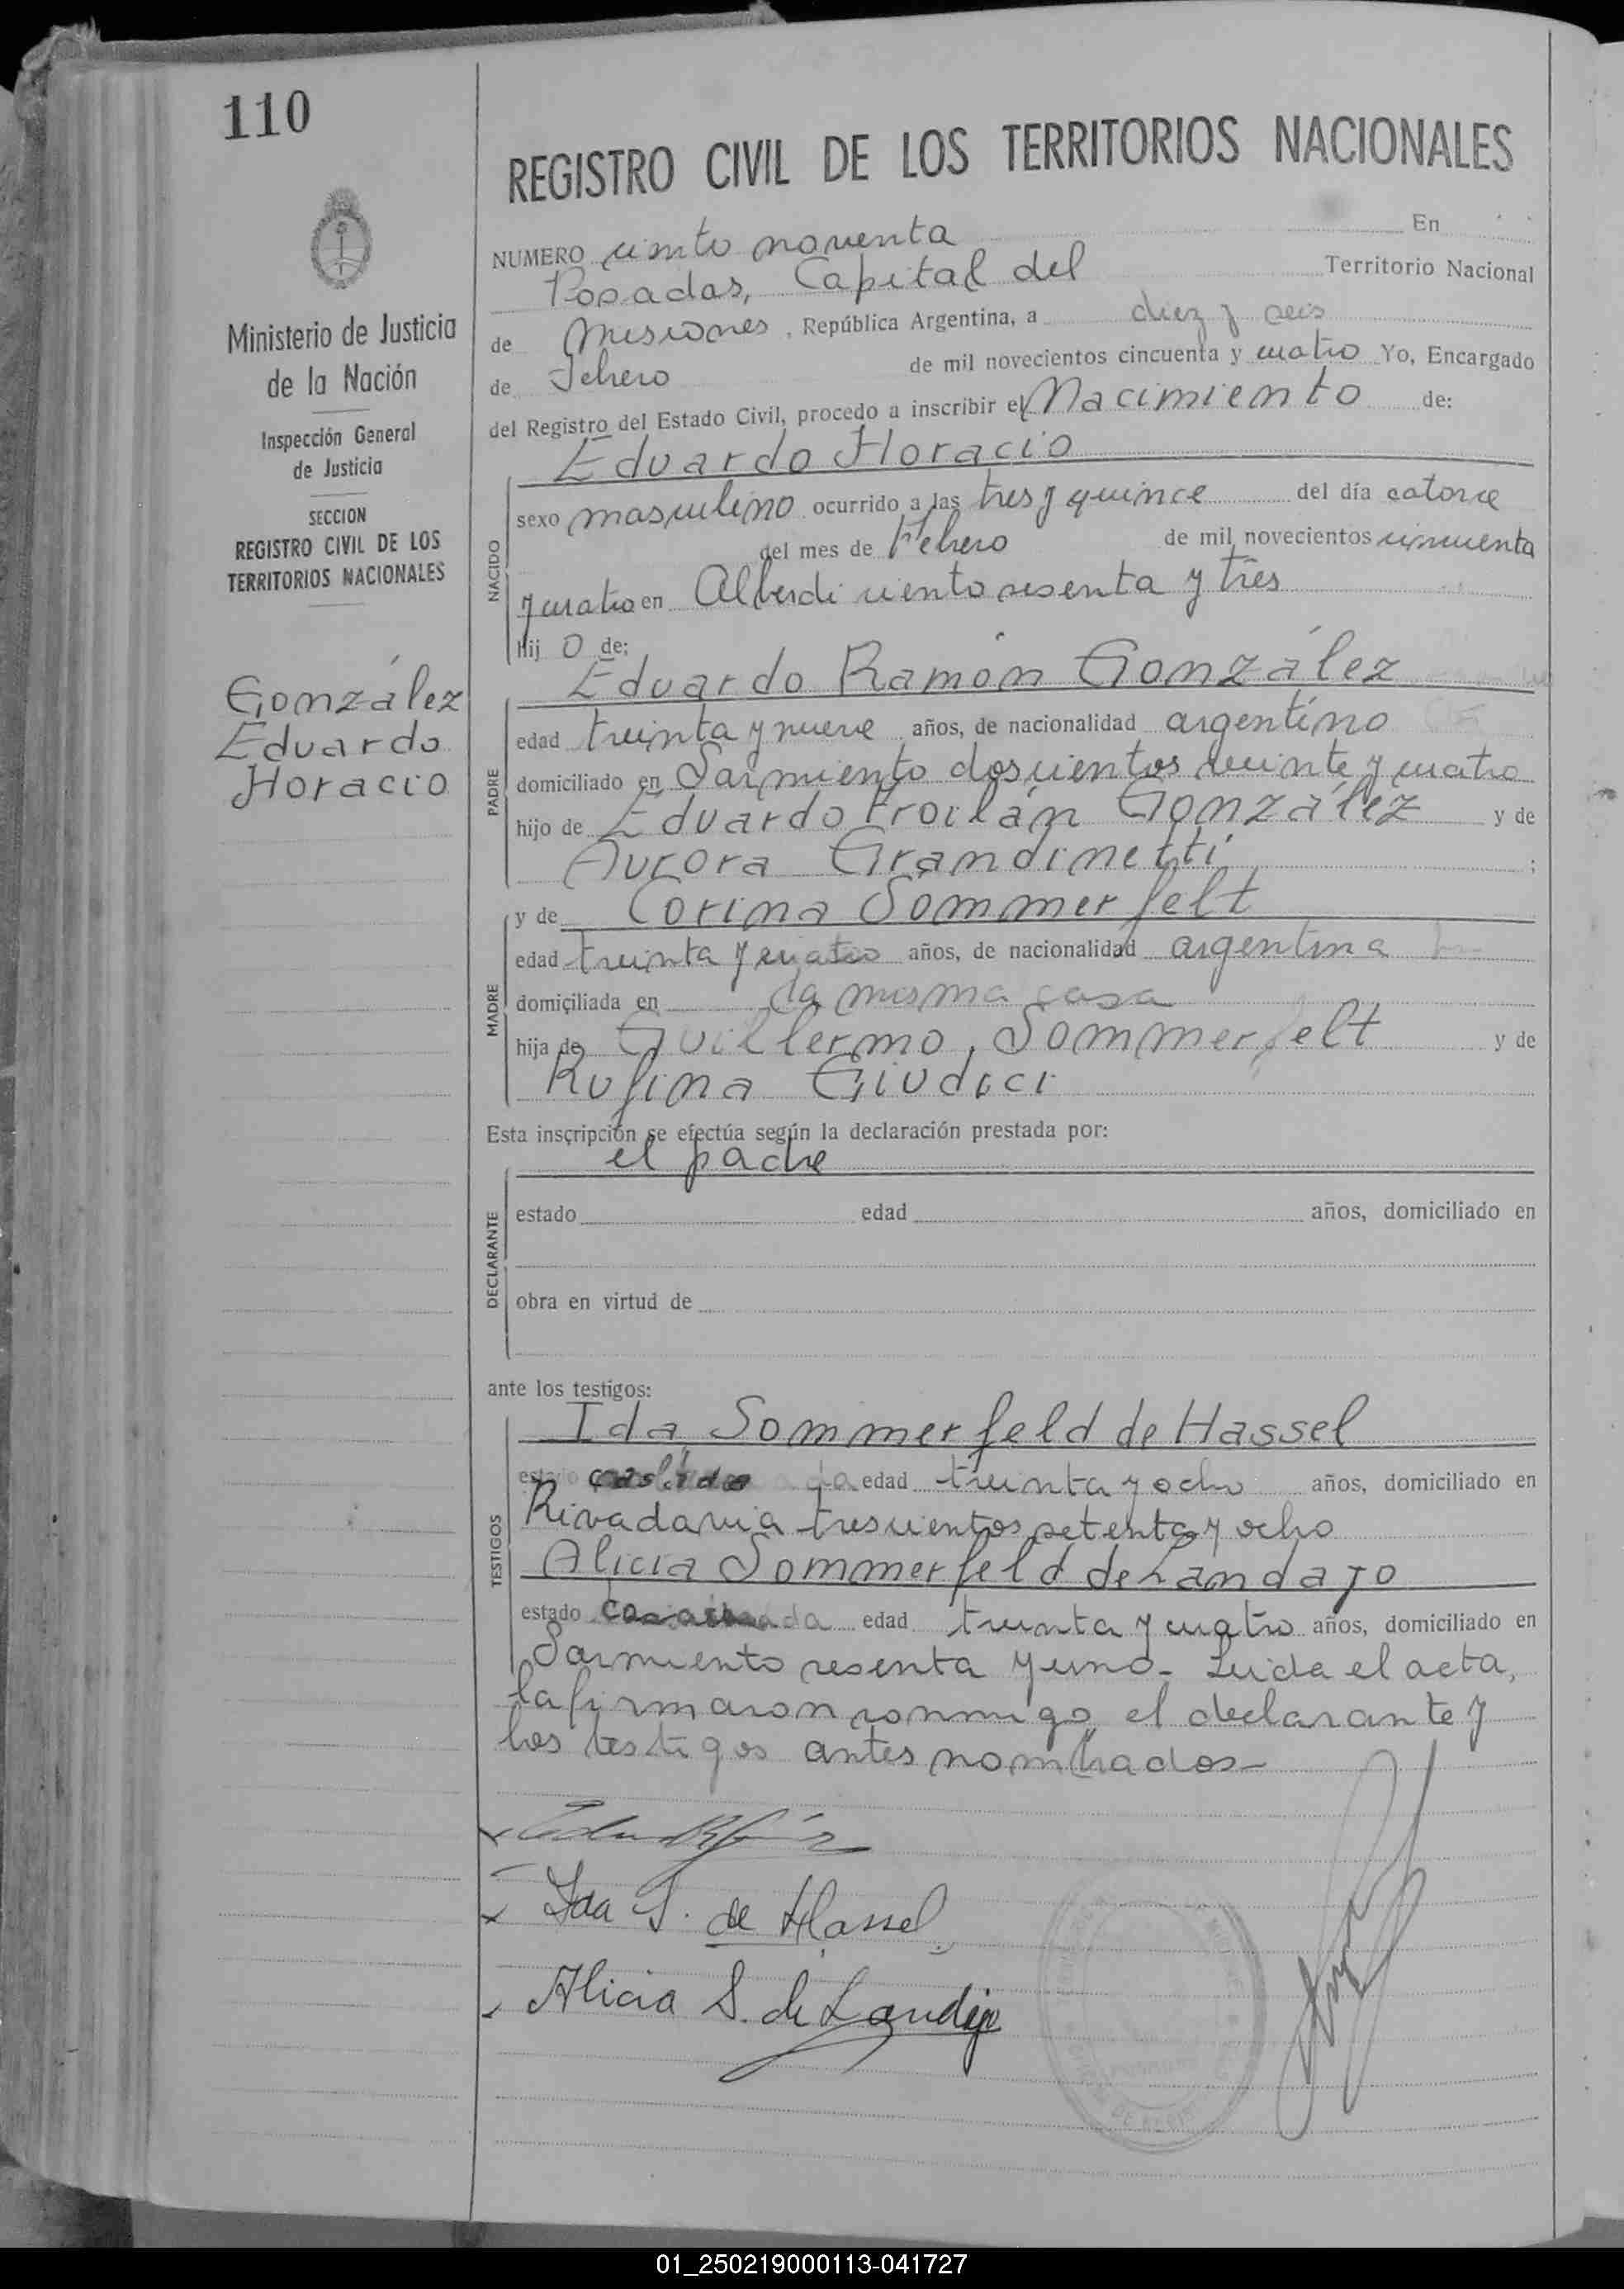 110
REGISTRO CIVIL DE LOS TERRITORIOS NACIONALES
Ministerio de Justicia
de la Nación
Inspección General
de Justicia
SECCION
REGISTRO CIVIL DE LOS
TERRITORIOS NACIONALES
González
Eduardo
Horacio
NUMERO ciento noventa En
Posadas, Capital del Territorio Nacional
de Misiones, República Argentina, a diez y seis
de Febrero de mil novecientos cincuenta y cuatro Yo, Encargado
del Registro del Estado Civil, procedo a inscribir el Nacimiento de:
Eduardo Horacio
NACIDO
sexo masculino ocurrido a las tres y quince del día catorce
del mes de Febrero de mil novecientos cincuenta
y cuatro en Alberdi ciento sesenta y tres
hij o de:
Eduardo Ramón González
PADRE
edad treinta y nueve años, de nacionalidad argentino
domiciliado en Sarmiento doscientos veinte y cuatro
hijo de Eduardo Froilán González y de
Aurora Grandinetti ;
y de Corina Sommerfelt
MADRE
edad treinta y cuatro años, de nacionalidad argentina
domiciliada en la misma casa
hija de Guillermo Sommerfelt y de
Rufina Giudici
Esta inscripción se efectúa según la declaración prestada por:
el padre
DECLARANTE
estado edad años, domiciliado en
obra en virtud de
ante los testigos:
Ida Sommerfeld de Hassel
TESTIGOS
estado edad treinta y ocho años, domiciliado en
Rivadavia trescientos setenta y ocho
Alicia Sommerfeld de Landajo
estado edad treinta y cuatro años, domiciliado en
Sarmiento sesenta y uno- Leida el acta,
la firmaron conmigo el declarante y
los testigos antes nombrados-
Ida S. de Hassel
Alicia S. de Landajo
01_250219000113-041727